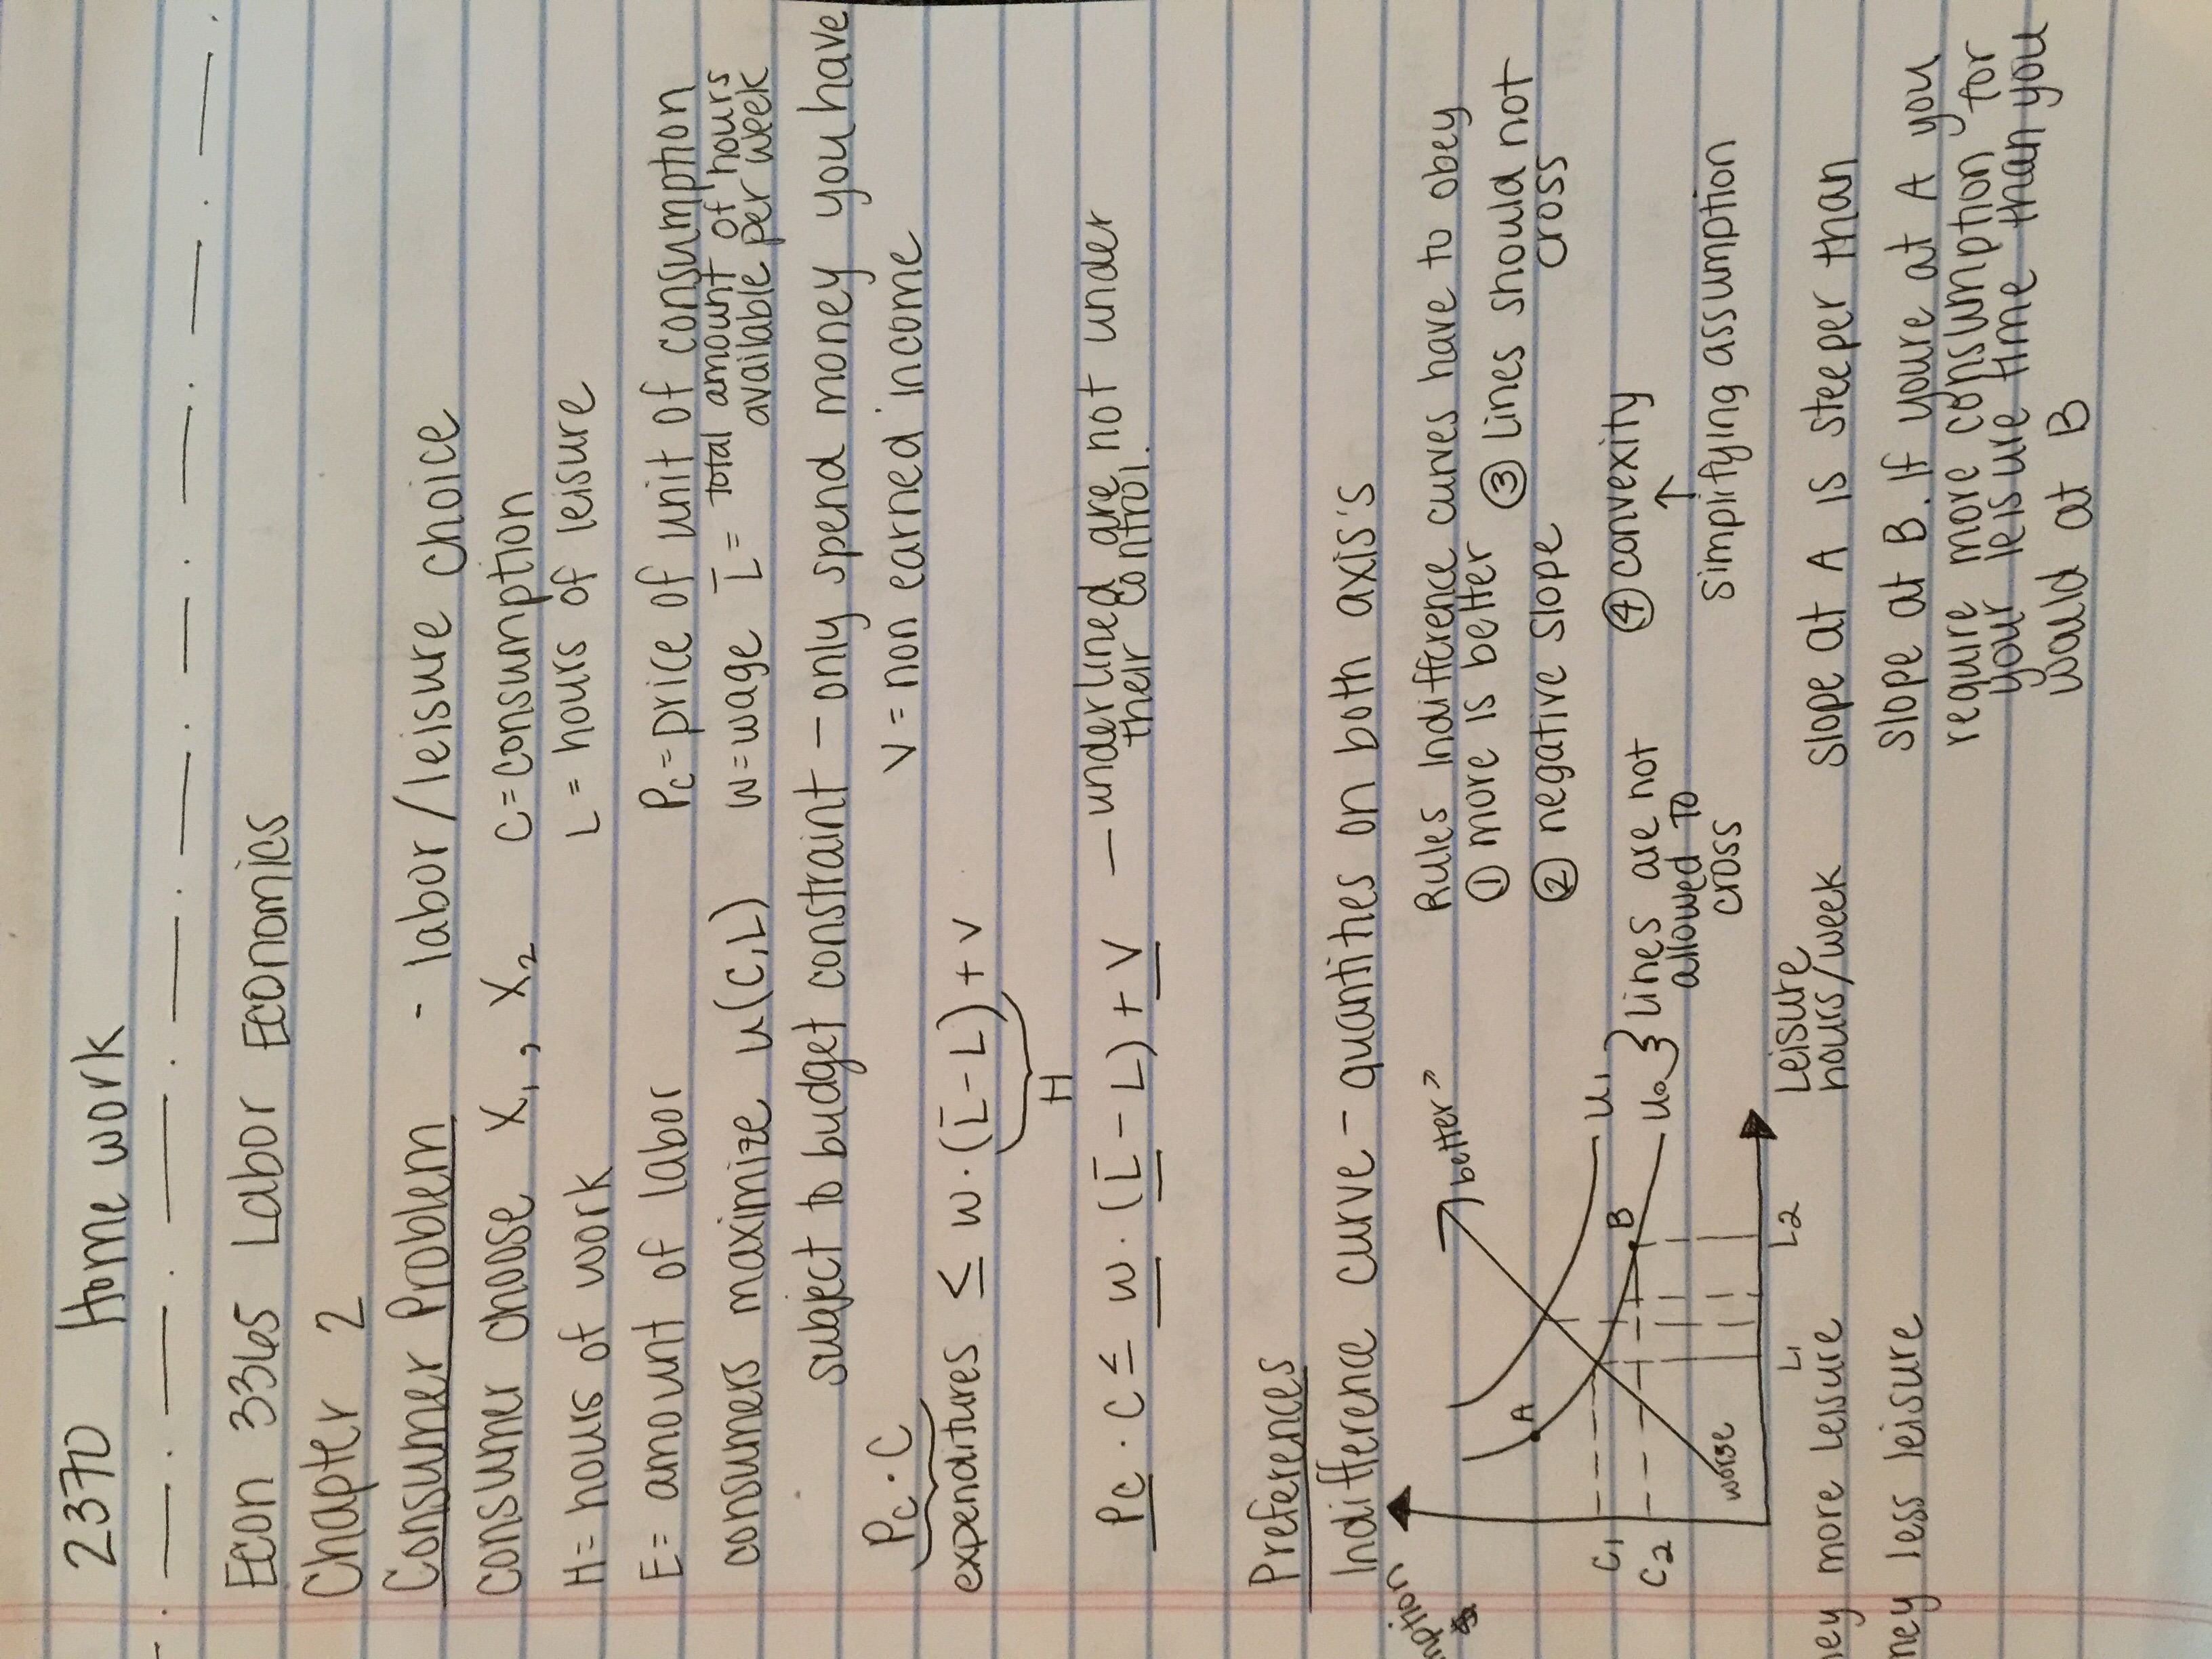 2370 Home work
Econ 3365 Labor Economics
Chapter 2
Consumer Problem - labor/leisure choice
consumer choose X₁, X₂ C=consumption
H=hours of work L=hours of leisure
E=amount of labor Pc=price of unit of consumption
consumers maximize u(C,L) w=wage L̄= total amount of hours
available per week
subject to budget constraint - only spend money you have
Pc·C V=non earned income
expenditures ≤ w·(L̄-L)+V
H
Pc·C ≤ w·(L̄-L)+V - underlined are not under
their control.
Preferences
Indifference curve - quantities on both axis's
Rules indifference curves have to obey
① more is better ③ lines should not
cross
② negative slope
④ convexity
↑
simplifying assumption
"better"
A
B
U₁
U₀ } lines are not
allowed to
cross
C₁
C₂
worse
L₁ L₂
Leisure
hours/week
more leisure
less leisure
Slope at A is steeper than
slope at B. If youre at A you
require more consumption for
your leisure time than you
would at B